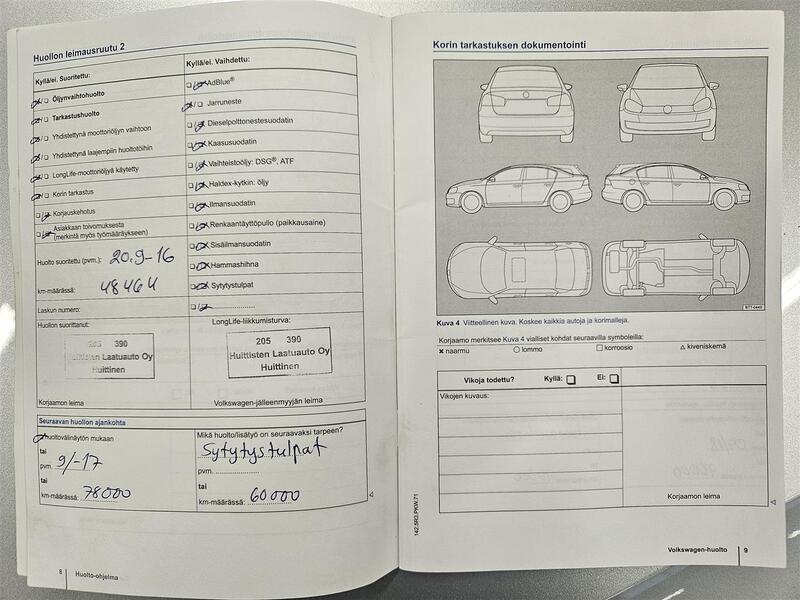 Huollon leimausruutu 2
Kyllä/ei. Suoritettu:
Öljynvaihtohuolto
Tarkastushuolto
Yhdistettynä moottoriöljyn vaihtoon
Yhdistettynä laajempiin huoltotöihin
LongLife-moottoriöljyä käytetty
Korin tarkastus
Korjauskehotus
Asiakkaan toivomuksesta
(merkintä myös työmääräykseen)
Huolto suoritettu (pvm.): 20.9-16
km-määrässä: 48464
Laskun numero:
Huollon suorittanut:
205 390
Huittisten Laatuauto Oy
Huittinen
Korjaamon leima
Kyllä/ei. Vaihdettu:
AdBlue®
Jarruneste
Dieselpolttonestesuodatin
Kaasusuodatin
Vaihteistoöljy: DSG®, ATF
Haldex-kytkin: öljy
Ilmansuodatin
Renkaantäyttöpullo (paikkausaine)
Sisäilmansuodatin
Hammashihna
Sytytystulpat
LongLife-liikkumisturva:
205 390
Huittisten Laatuauto Oy
Huittinen
Volkswagen-jälleenmyyjän leima
Seuraavan huollon ajankohta
Huoltovälinäytön mukaan
tai
pvm. 9/-17
tai
km-määrässä: 78000
Mikä huolto/lisätyö on seuraavaksi tarpeen?
Sytytystulpat
pvm.
tai
km-määrässä: 60000
8 Huolto-ohjelma
Korin tarkastuksen dokumentointi
Kuva 4 Viitteellinen kuva. Koskee kaikkia autoja ja korimalleja.
Korjaamo merkitsee Kuva 4 vialliset kohdat seuraavilla symboleilla:
naarmu lommo korroosio kiveniskemä
Vikoja todettu? Kyllä: Ei:
Vikojen kuvaus:
Korjaamon leima
142.5R3.PKW.71
Volkswagen-huolto 9